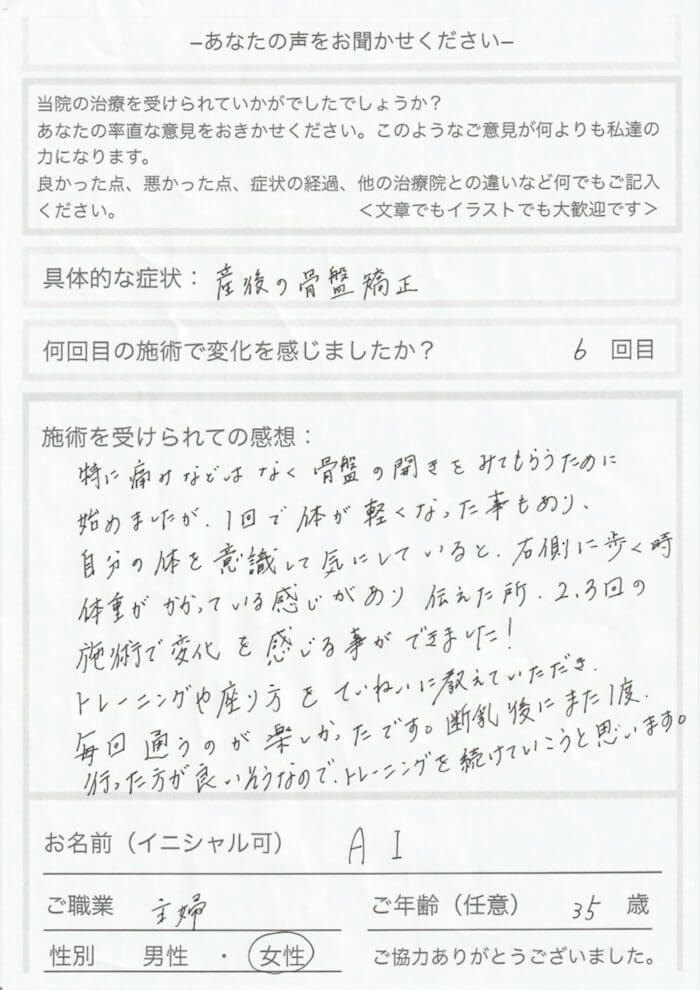 –あなたの声をお聞かせください–
当院の治療を受けられていかがでしたでしょうか？
あなたの率直な意見をおきかせください。このようなご意見が何よりも私達の
力になります。
良かった点、悪かった点、症状の経過、他の治療院との違いなど何でもご記入
ください。 ＜文章でもイラストでも大歓迎です＞
具体的な症状： 産後の骨盤矯正
何回目の施術で変化を感じましたか？ 6 回目
施術を受けられての感想：
特に痛みなどはなく骨盤の開きをみてもらうために
始めましたが、1回で体が軽くなった事もあり、
自分の体を意識して気にしていると、右側に歩く時
体重がかかっている感じがあり伝えた所、2、3回の
施術で変化を感じる事ができました！
トレーニングや座り方をていねいに教えていただき、
毎回通うのが楽しかったです。断乳後にまた1度、
行った方が良いそうなので、トレーニングを続けていこうと思います。
お名前（イニシャル可） A I
ご職業 主婦 ご年齢（任意） 35 歳
性別 男性 ・ 女性 ご協力ありがとうございました。